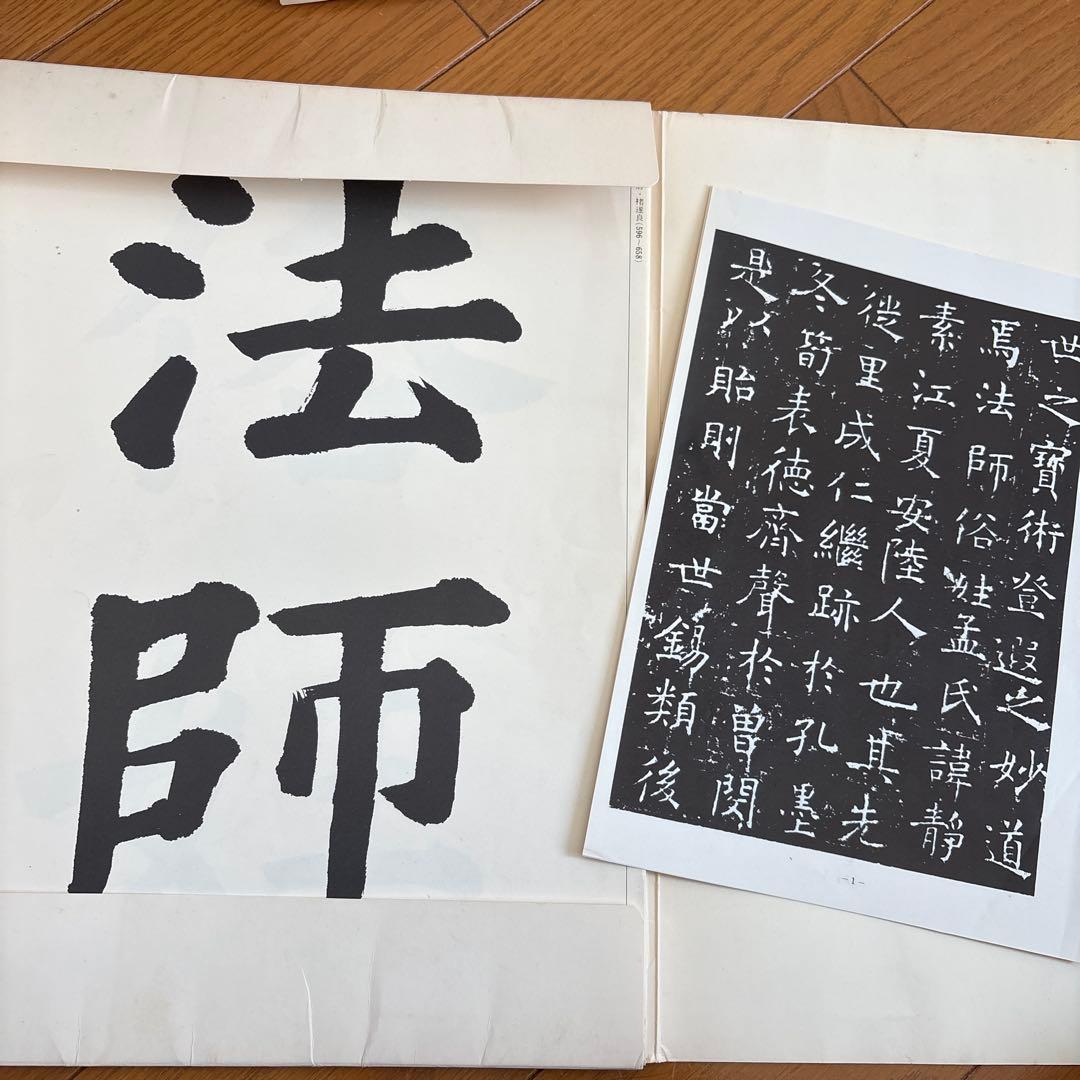 法師
・褚遂良(596〜658)
世之寶術登遐之妙道
焉法師俗姓孟氏諱靜
素江夏安陸人也其先
徙里成仁繼跡於孔墨
冬筍表德齊聲於曾閔
是以貽則當世錫類後
－1－